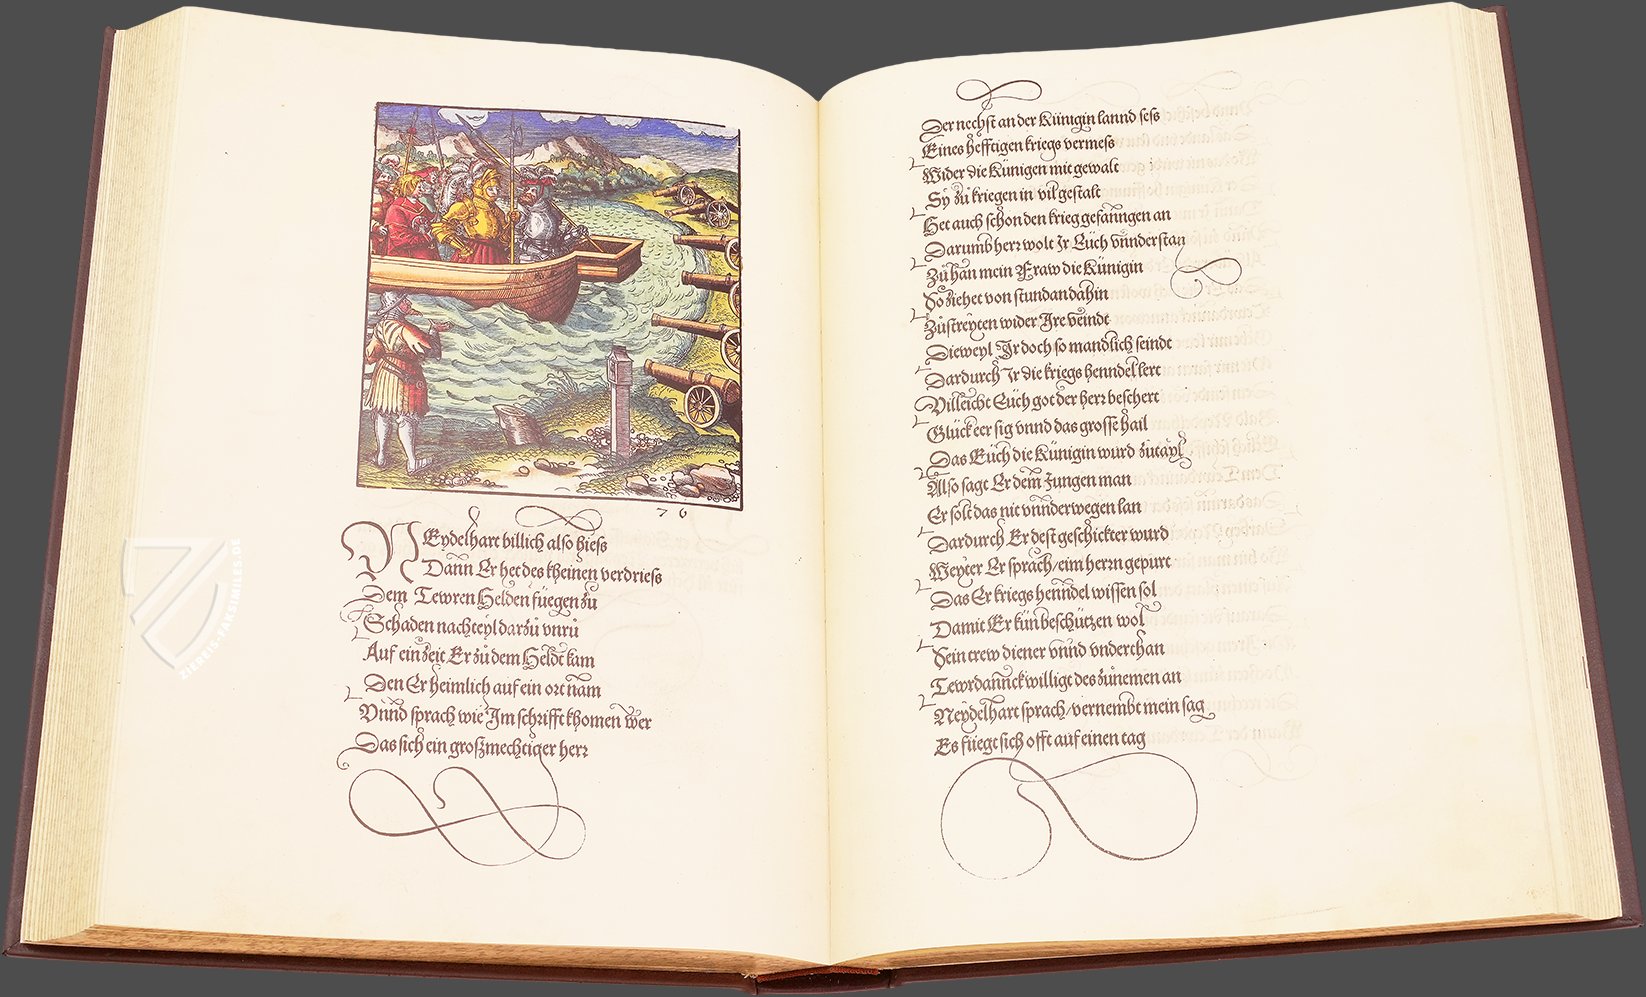 76
NEydelhart billich also hiess
Dann Er het des kheinen verdriess
Dem Tewren Helden füegen zů
Schaden nachteyl darzů vnrů
Auf ein zeit Er zů dem Heldt kam
Den Er heimlich auf ein ort nam
Vnnd sprach wie Im schrifft khomen wer
Das sich ein großmechtiger herr
ZIEREIS-FAKSIMILES.DE
Der nechst an der Künigin lannd sess
Eines hefftigen kriegs vermess
Wider die Künigen mit gewalt
Sy zů kriegen in vil gestalt
Het auch schon den krieg gefanngen an
Darumb herr wolt Ir Euch vnnderstan
Zů han mein Fraw die Künigin
So ziehet von stundan dahin
Zůstreyten wider Ire veindt
Dieweyl Ir doch so mandlich seindt
Dardurch Ir die kriegs henndel lert
Villeicht Euch got der herr beschert
Glück eer sig vnnd das grosse hail
Das Euch die Künigin wurd zůtayl
Also sagt Er dem Jungen man
Er solt das nit vnnderwegen lan
Dardurch Er dest geschickter wurd
Weyter Er sprach/eim herrn gepurt
Das Er kriegs henndel wissen sol
Damit Er kün beschützen wol
Sein trew diener vnnd vnderthan
Tewrdannck willigt des zůnemen an
Neydelhart sprach/vernembt mein sag
Es füegt sich offt auf einen tag